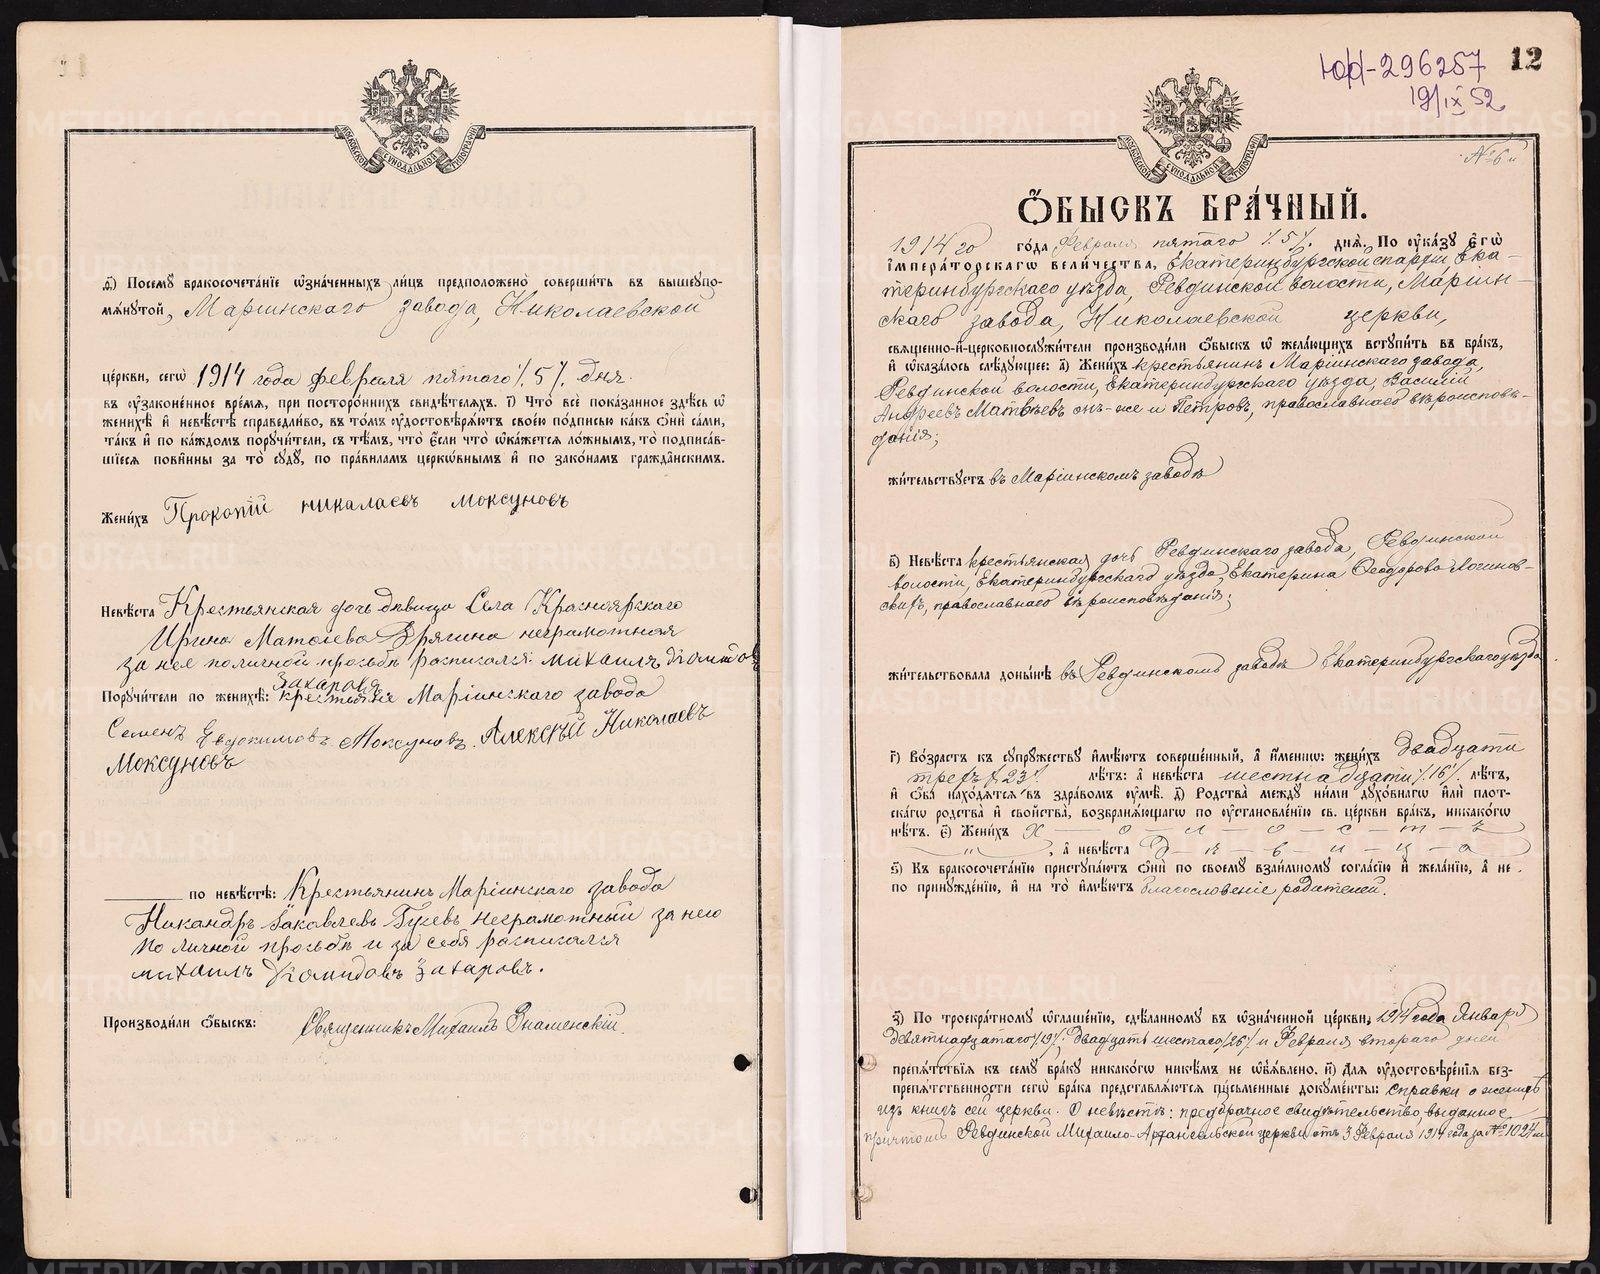 МОСКОВСКОЙ СѴНОДАЛЬНОЙ ТИПОГРАФІИ
ѳ) Посемꙋ бракосочетаніе ѡзначенныхъ лицъ предположено совершить въ вышеупо-
мянутой, Маріинскаго завода, Николаевской
церкви, сегѡ 1914 года февраля пятаго /.5/. дня.
въ ᲂузаконенное время, при постороннихъ свидѣтеляхъ. і) Что все показанное здѣсь ѡ
женихѣ и невѣстѣ справедливо, въ томъ ᲂудостовѣряютъ своею подписью какъ ѻни сами,
такъ и по каждомъ поручители, съ тѣмъ, что если что ѡкажется ложнымъ, то подписав-
шіеся повинны за то сꙋдꙋ, по правиламъ церковнымъ и по законамъ гражданскимъ.
Женихъ Прокопій никалаевъ моксуновъ
Невѣста Крестьянская дочь дѣвица Села Красноярскаго
Ирина Матѳіева Зрягина неграмотная
за нее по личной просьбѣ расписался михаилъ
Захаровъ
Поручители по женихѣ: крестьяне Маріинскаго завода
Семенъ Евдокимовъ Моксуновъ. Алексѣй Николаевъ
Моксуновъ
по невѣстѣ: Крестьянинъ Маріинскаго завода
Никандръ Іаковлевъ Гусевъ неграмотный за него
по личной просьбѣ и за себя расписался
михаилъ Захаровъ.
Производили ѻбыскъ: Священникъ Михаилъ Знаменскій.
Юр-296257 12
19/IX 52
№ 6й
МОСКОВСКОЙ СѴНОДАЛЬНОЙ ТИПОГРАФІИ
ѺБЫСКЪ БРАЧНЫЙ.
1914го года Февраля пятаго /.5/. дня. По ᲂуказꙋ Єгѡ
Императорскагѡ величества, Екатеринбургской епархіи Ека-
теринбургскаго уѣзда, Ревдинской волости, Маріин-
скаго завода, Николаевской церкви,
священно-и-церковнослужители производили ѻбыскъ ѡ желающихъ вступить въ бракъ,
и ѡказалось слѣдующее: а) Женихъ крестьянинъ Маріинскаго завода,
Ревдинской волости, Екатеринбургскаго уѣзда, Василій
Андреевъ Матвѣевъ онъ-же и Петровъ, православнаго вѣроисповѣ-
данія;
жительствуетъ въ Маріинскомъ заводѣ
в) Невѣста крестьянская дочь Ревдинскаго завода, Ревдинской
волости, Екатеринбургскаго уѣзда, Екатерина Ѳеодорова Логинов-
скихъ, православнаго вѣроисповѣданія;
жительствовала донынѣ въ Ревдинскомъ заводѣ Екатеринбургскаго уѣзда
г) Возрастъ къ сꙋпрꙋжествꙋ имѣютъ совершенный, а именно: женихъ двадцати
трехъ /.23/. лѣтъ: а невѣста шестнадцати /.16/. лѣтъ,
и ѻба находятся въ здравомъ ᲂумѣ. д) Родства между ними духовнаго или плот-
скаго родства и свойства, возбраняющаго по ᲂустановленію св. церкви бракъ, никакогѡ
нѣтъ. є) Женихъ Х — о — л — о — с — т — ъ
„ , а невѣста д — ѣ — в — и — ц — а
ѕ) Къ бракосочетанію приступаютъ ѻни по своемꙋ взаимномꙋ согласію и желанію, а не
по принужденію, и на то имѣютъ благословеніе родителей.
з) По троекратному ѡглашенію, сдѣланному въ ѡзначенной церкви, 1914 года Января
Девятнадцатаго /.19/. Двадцать шестаго /.26/. и Февраля втораго дней
препятствія къ семꙋ бракꙋ никакогѡ никѣмъ не ѡбъявлено. и) Для ᲂудостовѣренія без-
препятственности сегѡ брака представляются письменные документы: Справки о женихѣ
изъ книгъ сей церкви. О невѣстѣ: предбрачное свидѣтельство, выданное
причтомъ Ревдинской Михаило-Архангельской церкви отъ 3 Февраля 1914 года за № 102